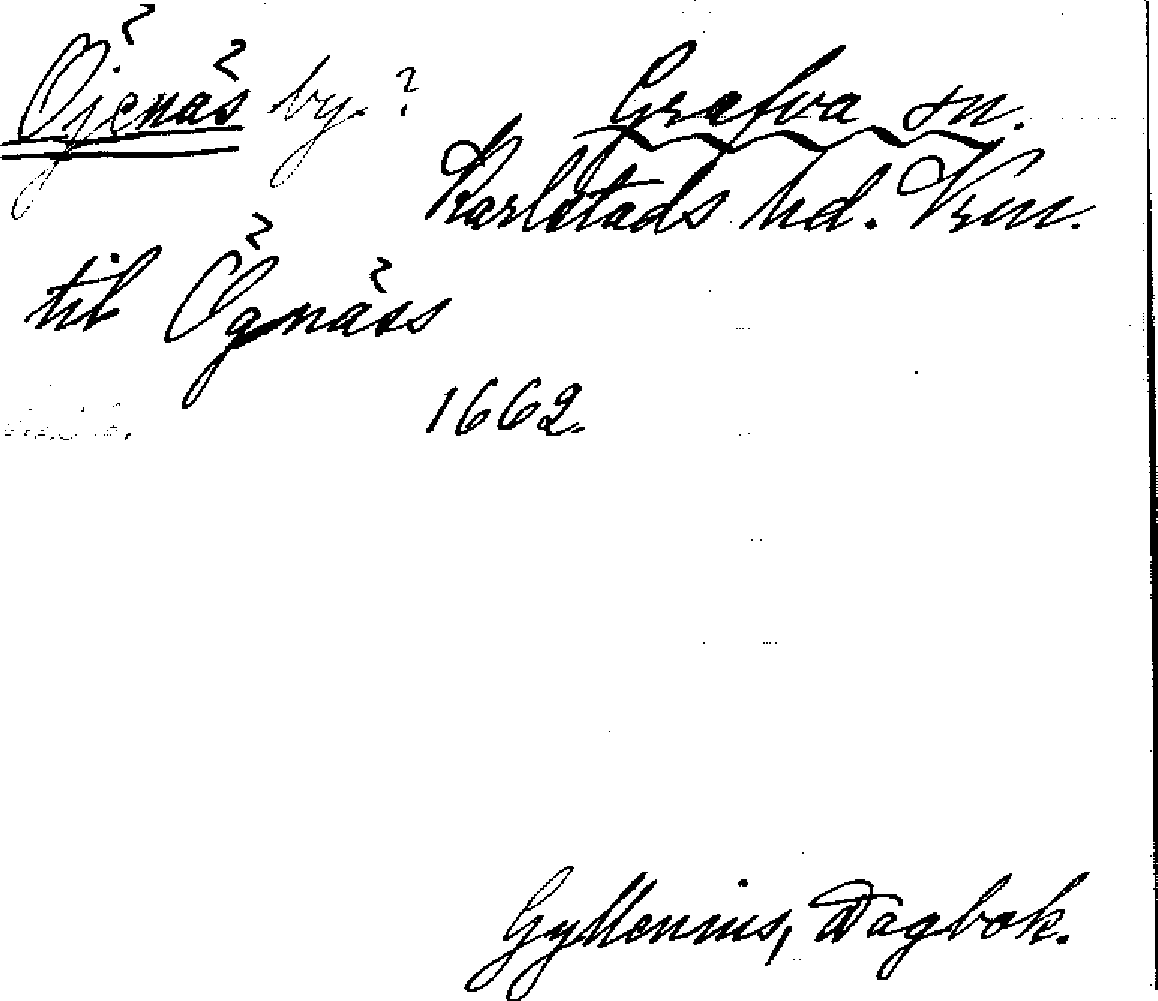 Öjenäs by. ?
Grafva sn.
Karlstads hd. Vrm.
til Ögnäss
1662.
Gyllenius, Dagbok.